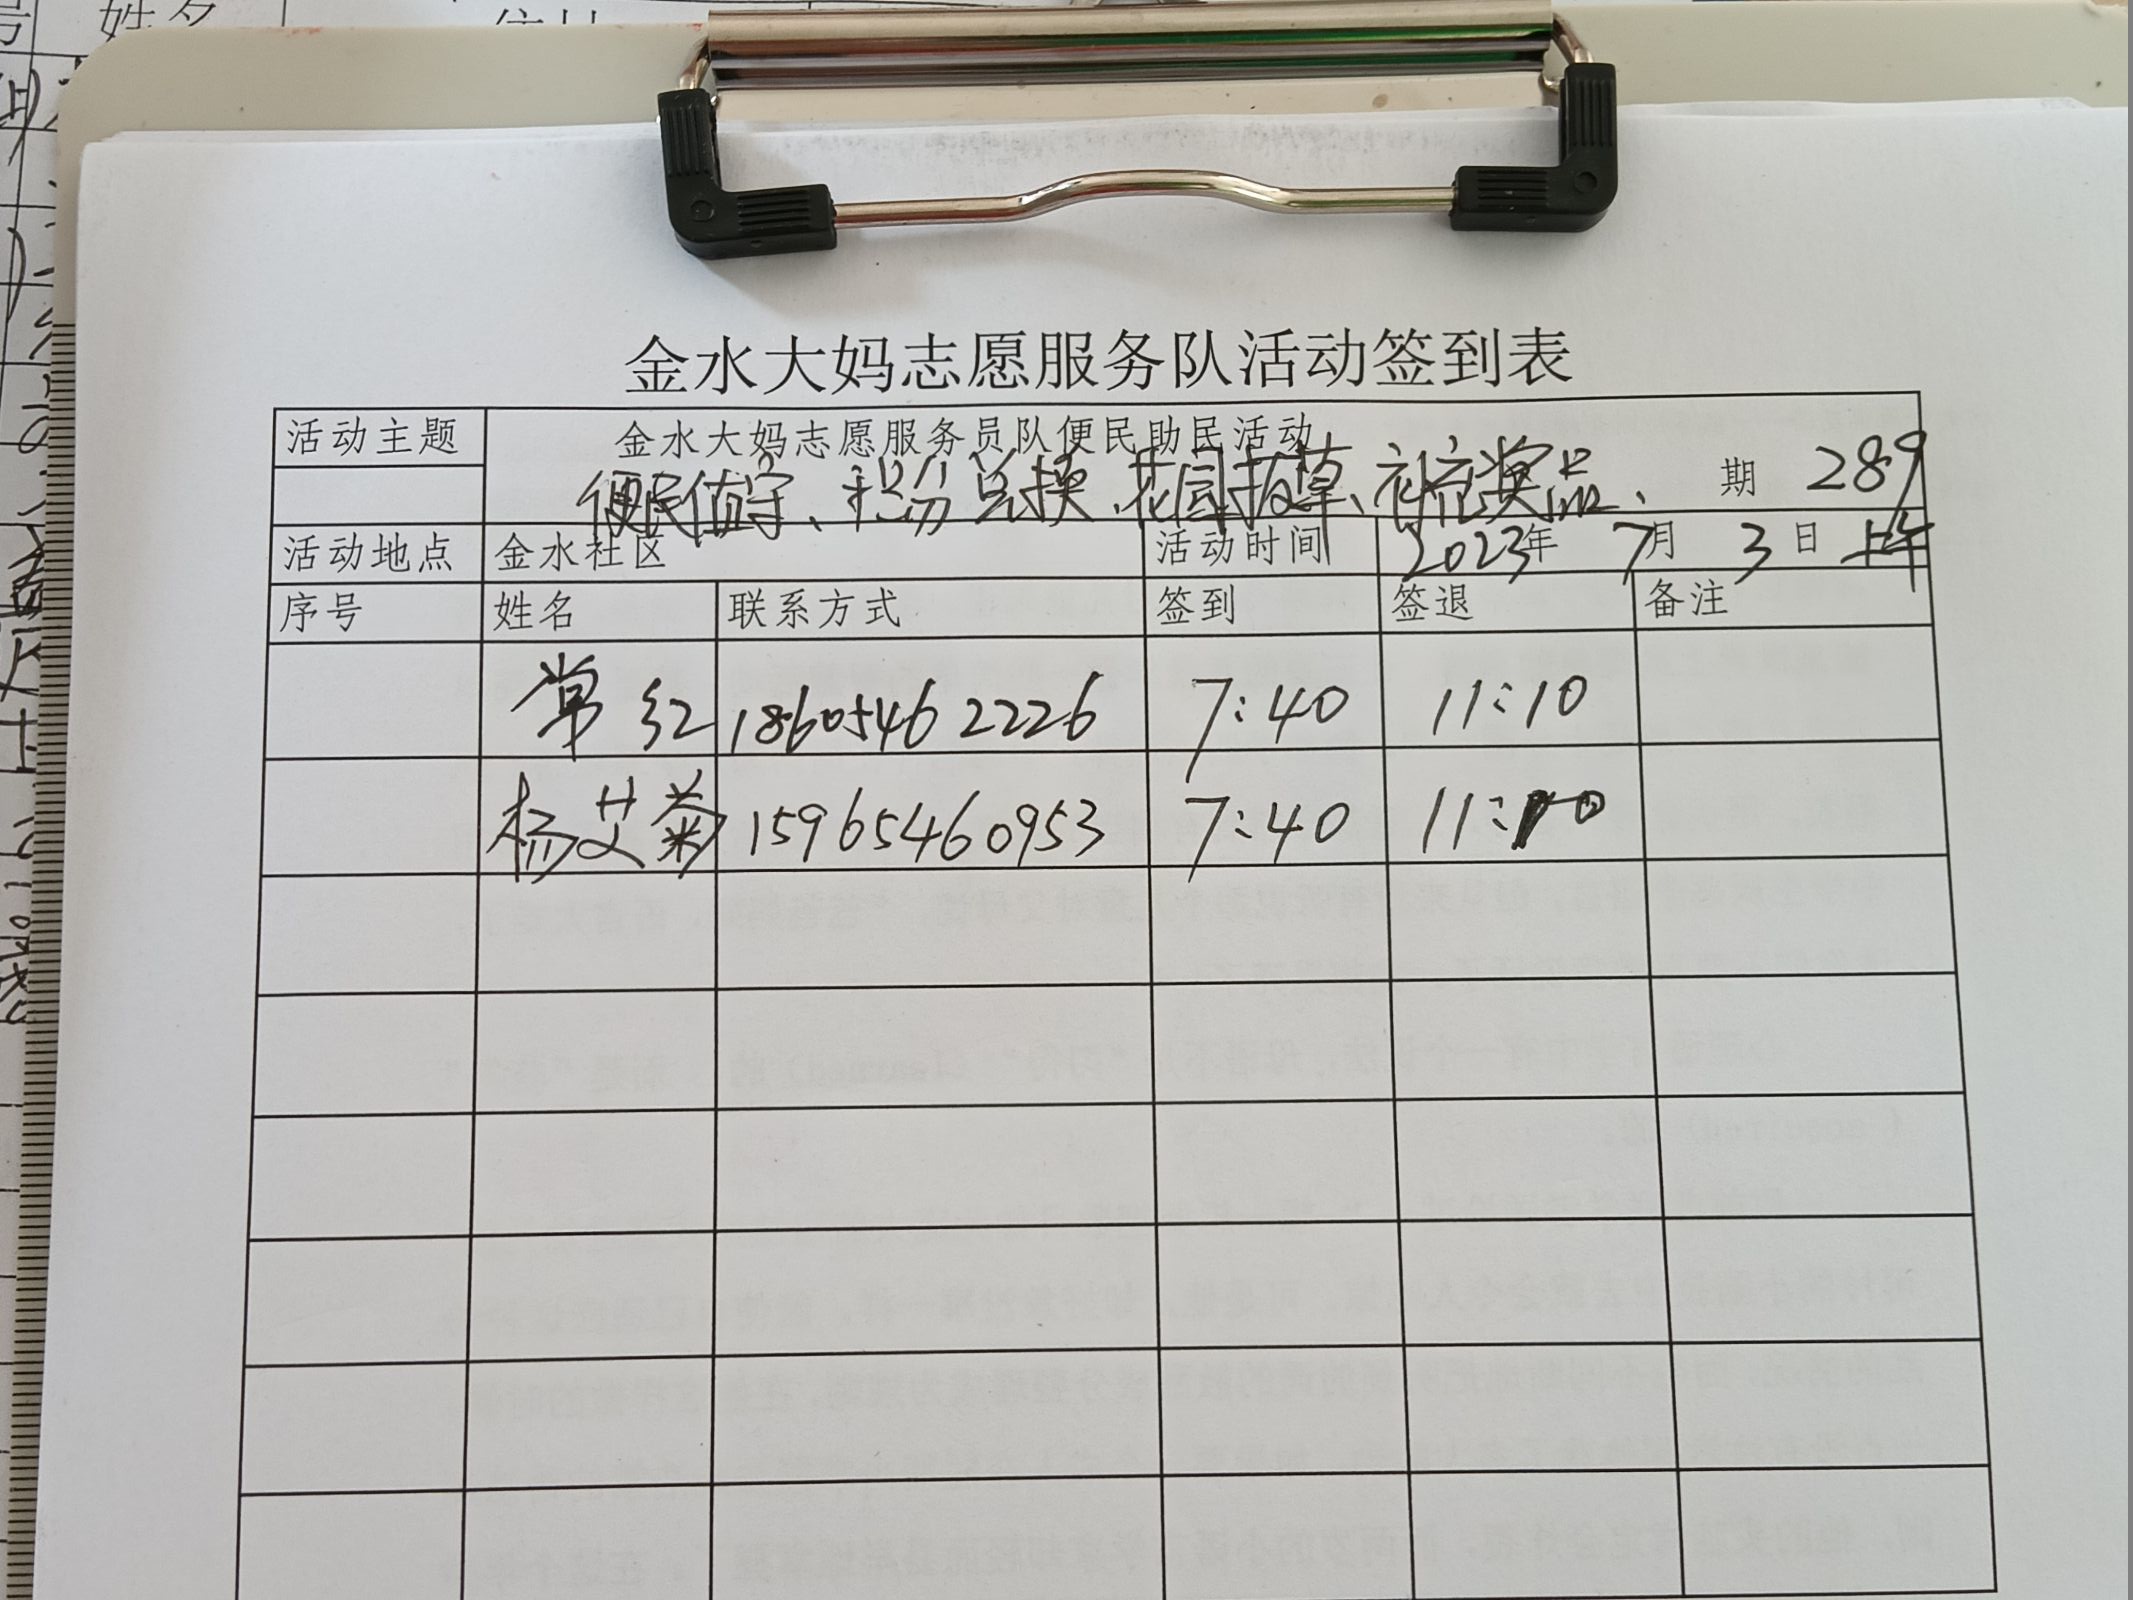 号 姓名 住址
金水大妈志愿服务队活动签到表
活动主题 金水大妈志愿服务员队便民助民活动
便民值守、积分兑换、花园拔草、补充奖品、 期 289
活动地点 金水社区 活动时间 2023年 7月 3日 上午
序号 姓名 联系方式 签到 签退 备注
常红 18605462226 7:40 11:10
杨艾菊 15965460953 7:40 11:10